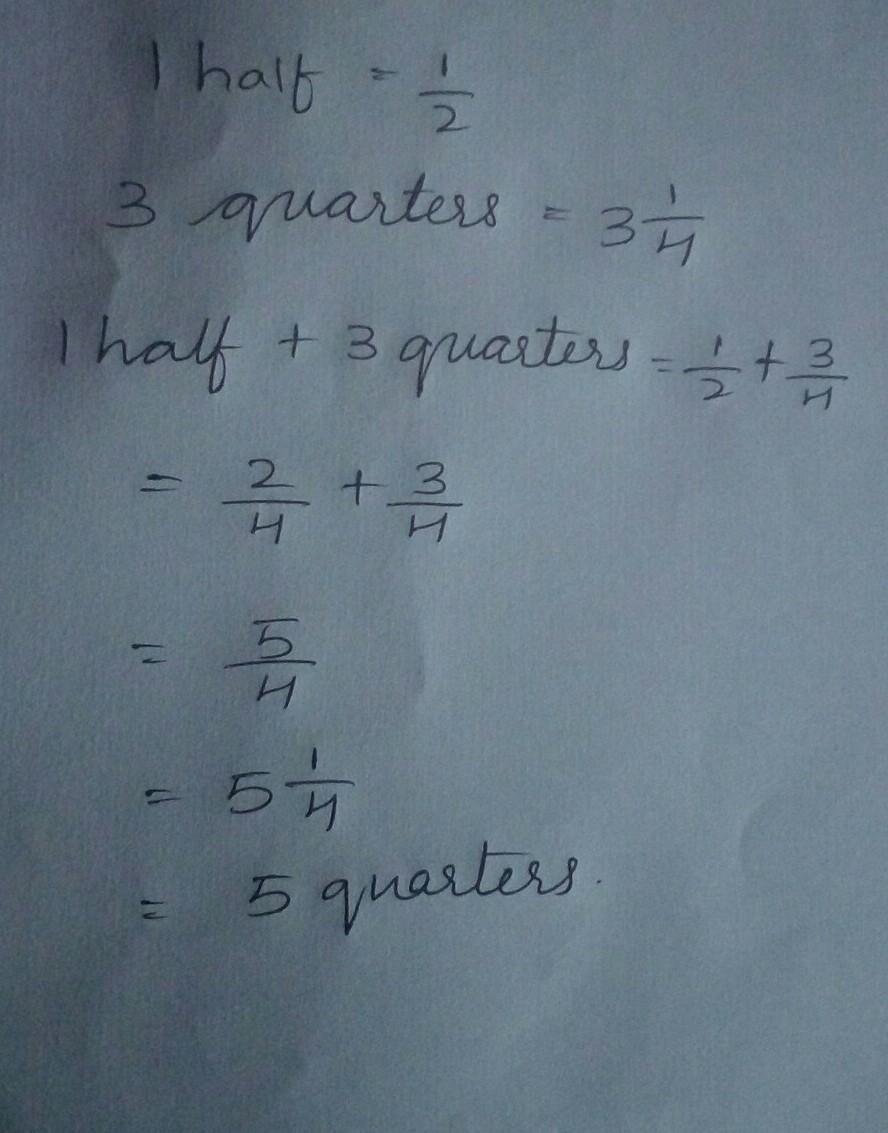 1 half = 1/2
3 quarters = 3 1/4
1 half + 3 quarters = 1/2 + 3/4
= 2/4 + 3/4
= 5/4
= 5 1/4
= 5 quarters.